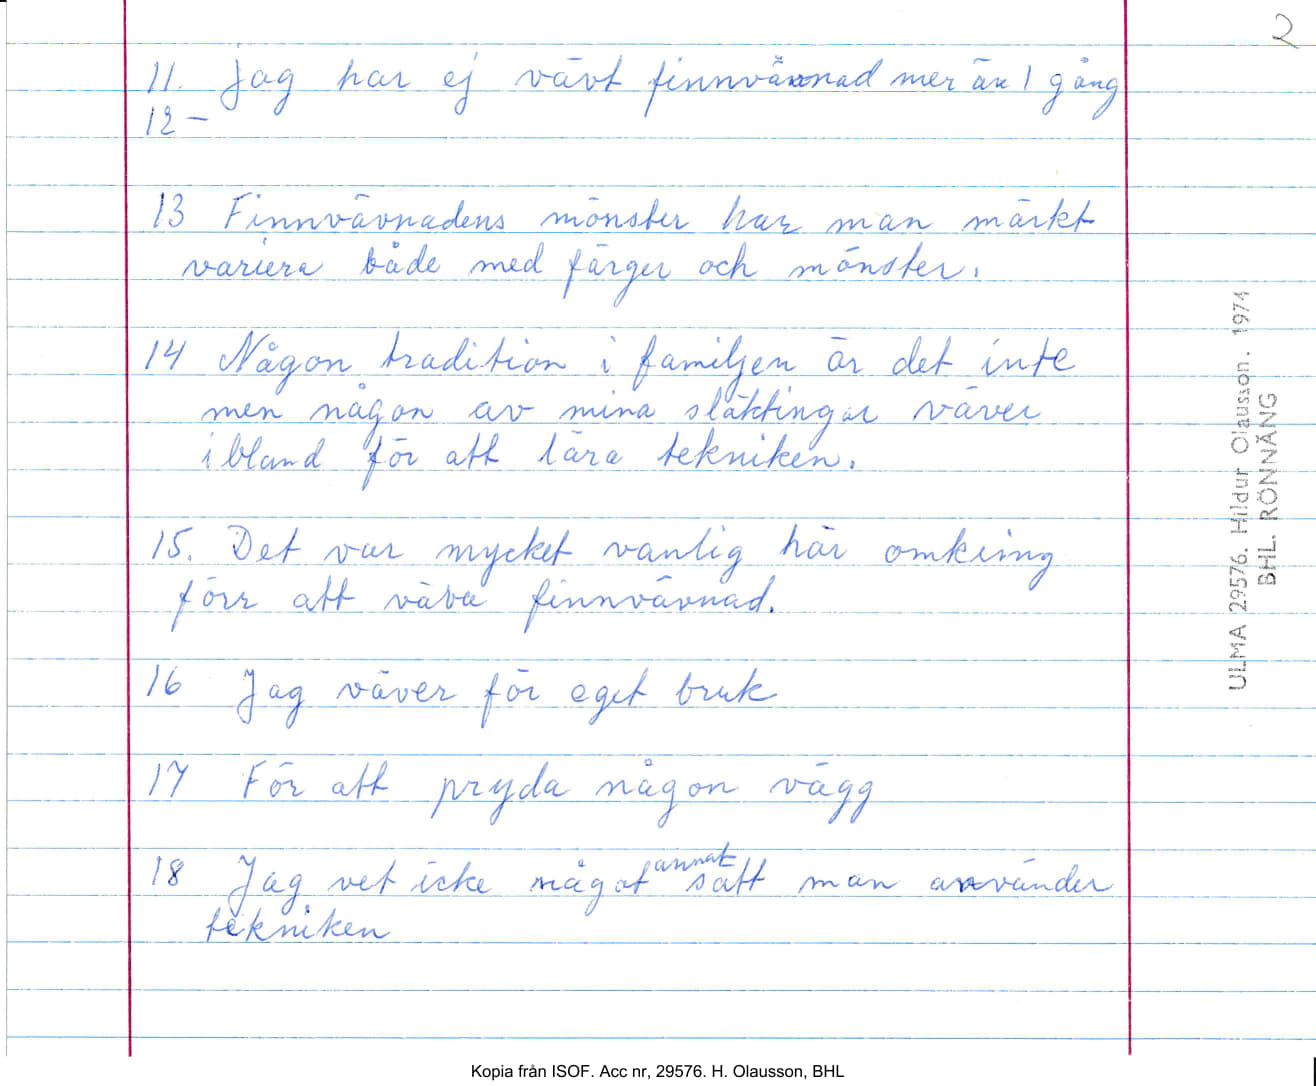 2
11. Jag har ej vävt finnvävnad mer än 1 gång
12 –
13 Finnvävnadens mönster har man märkt
variera både med färger och mönster.
14 Någon tradition i familjen är det inte
men någon av mina släktingar väver
ibland för att lära tekniken.
15. Det var mycket vanlig här omkring
förr att väva finnvävnad.
16 Jag väver för eget bruk
17 För att pryda någon vägg
18 Jag vet icke något annat sätt man använder
tekniken
ULMA 29576. Hildur Olausson. 1974
BHL. RÖNNÄNG
Kopia från ISOF. Acc nr, 29576. H. Olausson, BHL